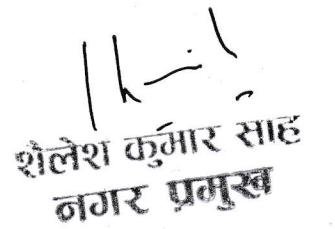 शैलेश कुमार साह
नगर प्रमुख